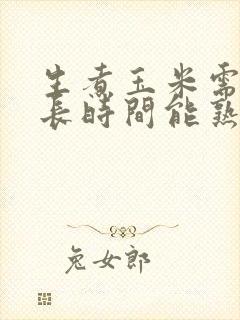 生煮玉米需
長時間能熟
兔女郎